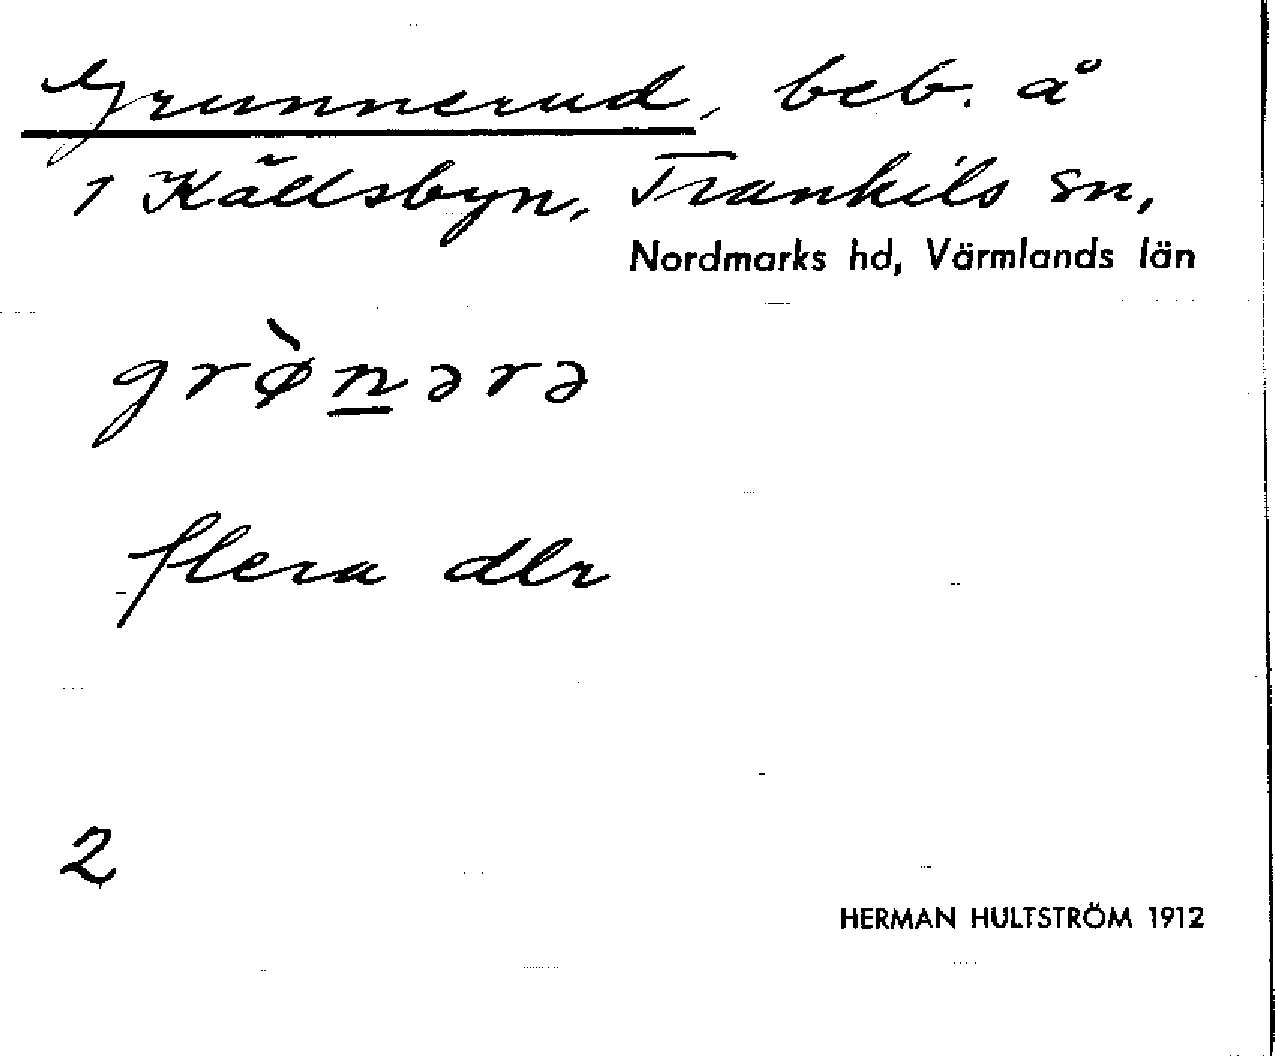 Grunnerud, beb. å
1 Källsbyn, Trankils sn,
Nordmarks hd, Värmlands län
grø̀nərə
flera dlr
2
HERMAN HULTSTRÖM 1912